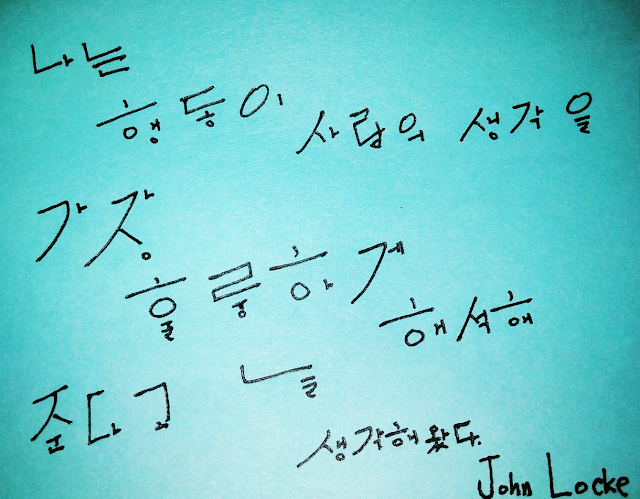 나는
행동이 사람의 생각을
가장
훌륭하게
해석해
준다고 늘
생각해왔다.
John Locke